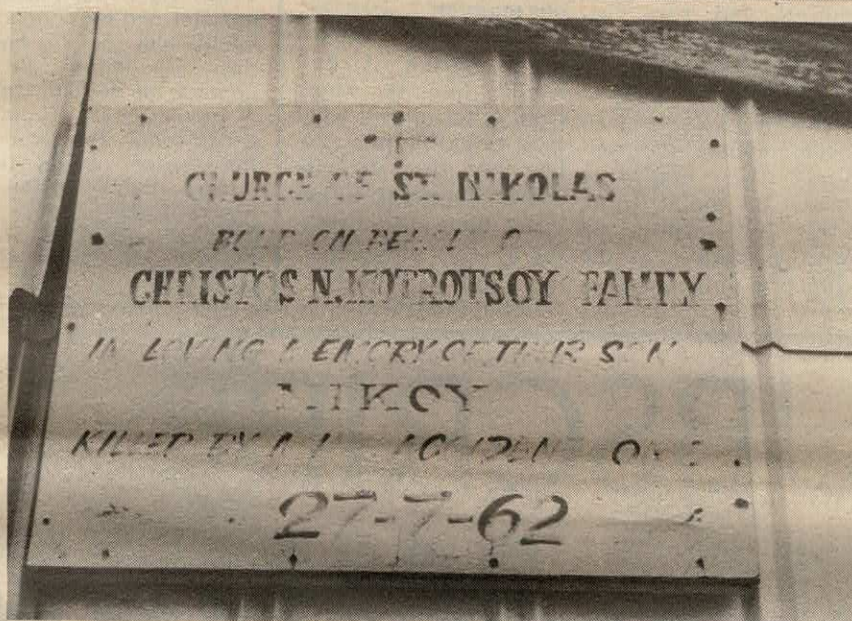 CHURCH OF ST. NIKOLAS
BUILT ON BEHALF O
CHRISTOS N. KOTROTSOY FAMILY
IN LOVING MEMORY OF THEIR SON
NIKOY
KILLED BY A ACCIDENT ON
27-7-62